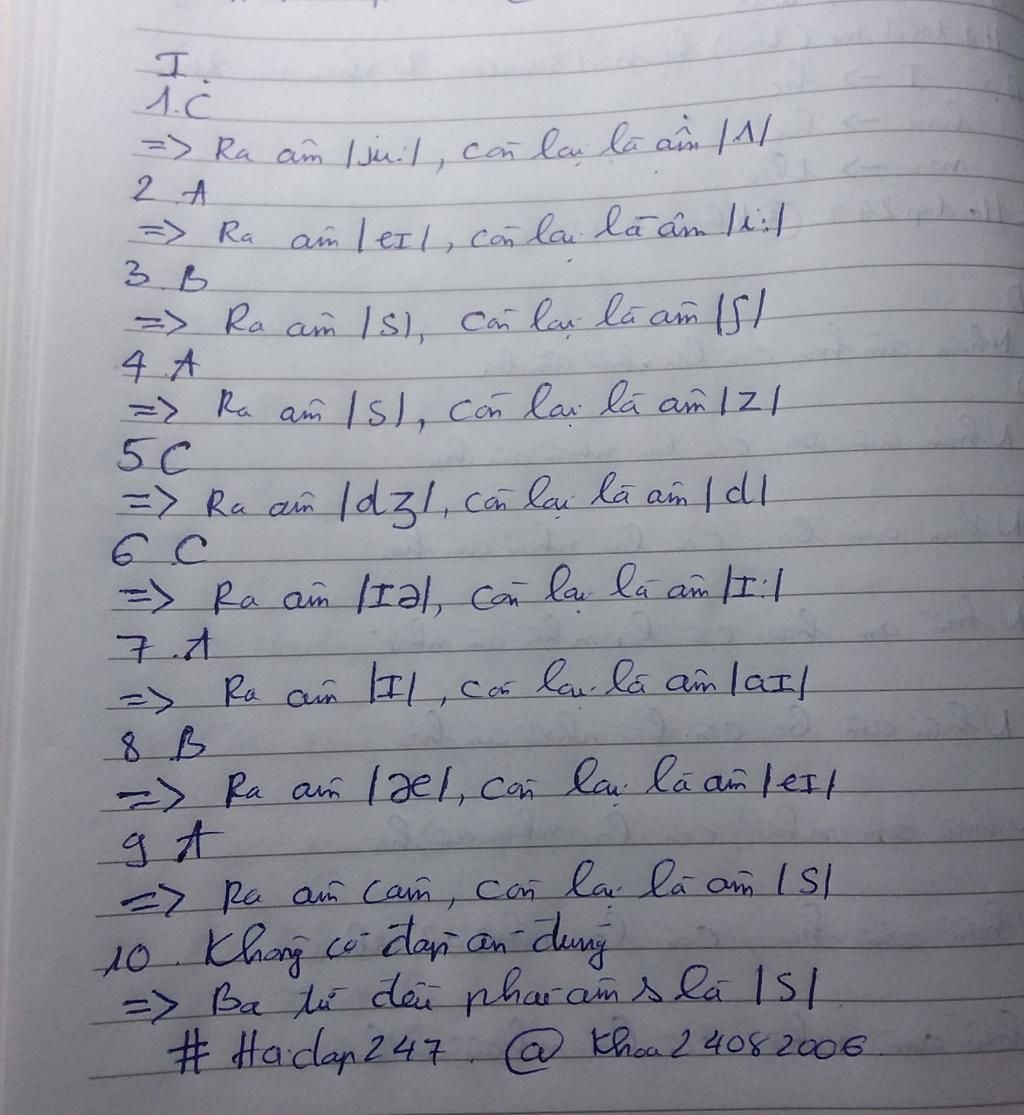 I.
1.C
=> Ra âm /ju:/, còn lại là âm /ʌ/
2 A
=> Ra âm /eɪ/, còn lại là âm /i:/
3 B
=> Ra âm /s/, còn lại là âm /ʃ/
4 A
=> Ra âm /s/, còn lại là âm /z/
5 C
=> Ra âm /dʒ/, còn lại là âm /d/
6 C
=> Ra âm /ɪə/, còn lại là âm /ɪ:/
7.A
=> Ra âm /ɪ/, còn lại là âm /aɪ/
8 B
=> Ra âm /æ/, còn lại là âm /eɪ/
9 A
=> Ra âm câm, còn lại là âm /s/
10. Không có đáp án đúng
=> Ba từ đều phát âm s là /s/
# Hoidap247. @ Khoa24082006